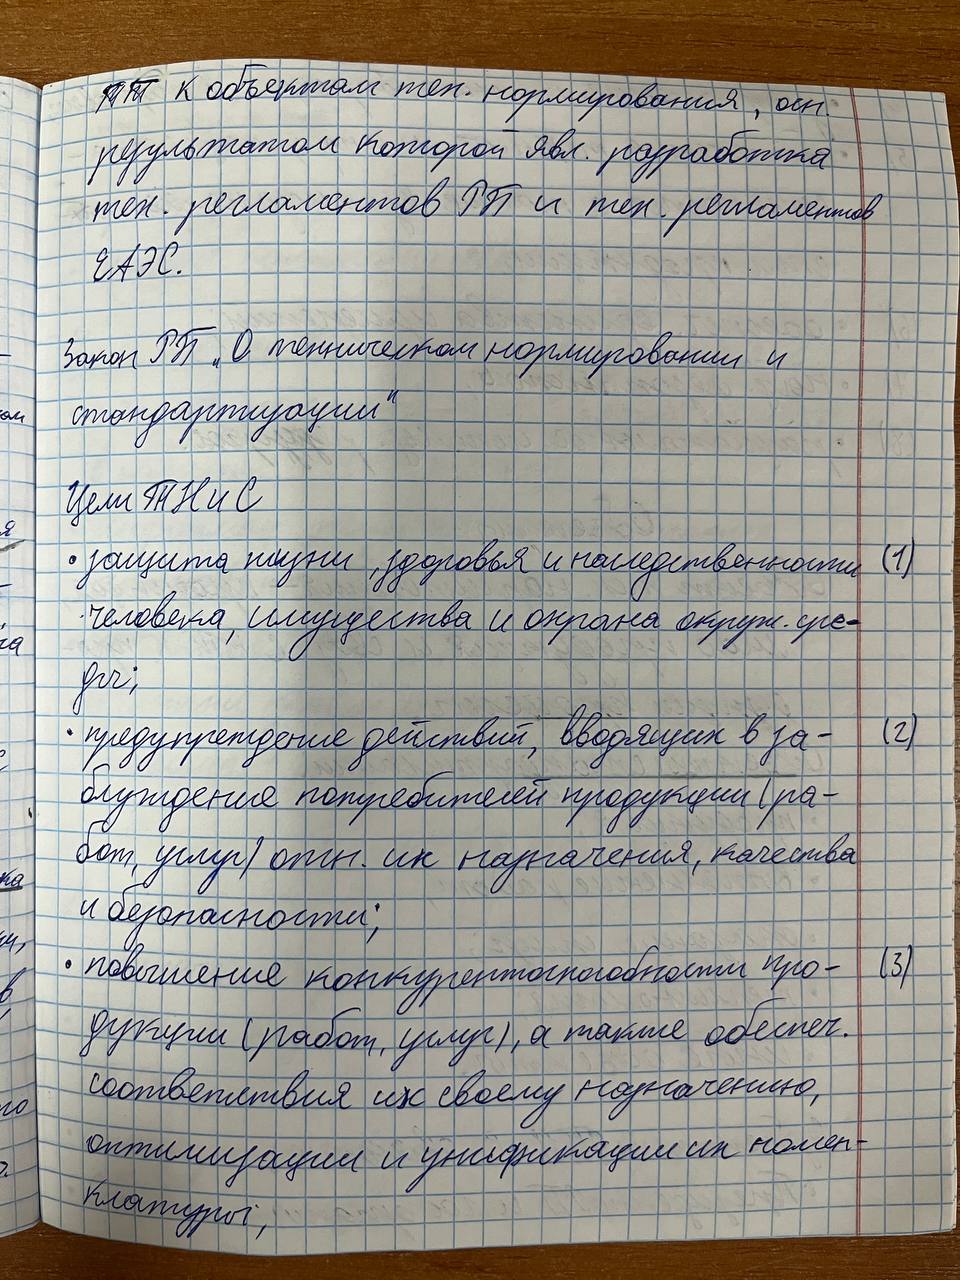 ТТ к объектам тех. нормирования, осн.
результатом которой явл. разработка
тех. регламентов РБ и тех. регламентов
ЕАЭС.
Закон РБ „О техническом нормировании и
стандартизации"
Цели ТНиС
• защита жизни, здоровья и наследственности (1)
человека, имущества и охрана окруж. сре-
ды;
• предупреждение действий, вводящих в за- (2)
блуждение потребителей продукции (ра-
бот, услуг) отн. их назначения, качества
и безопасности;
• повышение конкурентоспособности про- (3)
дукции (работ, услуг), а также обеспеч.
соответствия их своему назначению,
оптимизации и унификации их номен-
клатуры;